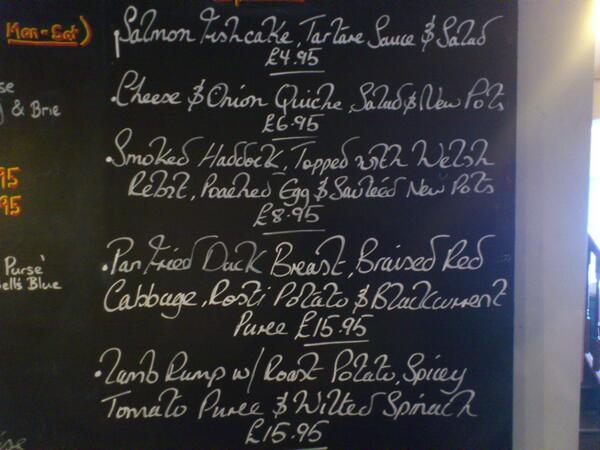 Mon-Sat)
& Brie
95
95
Purse'
Bell's Blue
Salmon Fishcake, Tartare Sauce & Salad
£4.95
• Cheese & Onion Quiche, Salad & New Pots
£6.95
• Smoked Haddock, Topped with Welsh
Rebit, Poached Egg & Sauteéd New Pots
£8.95
• Pan Fried Duck Breast, Braised Red
Cabbage, Rosti Potato & Blackcurrent
Puree £15.95
• Lamb Rump w/ Roast Potato, Spicey
Tomato Puree & Wilted Spinach
£15.95